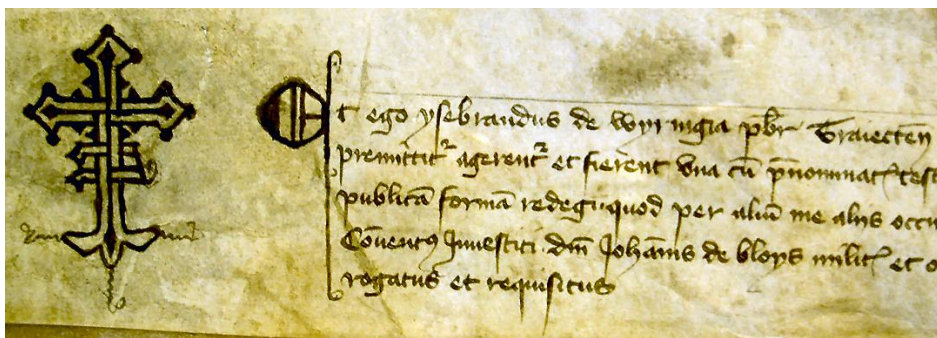 Et ego ysebrandus de Wyringia pbr Traiecten
premittit² agerent² et fierent vna cū p̄nominat
publicā formā redegi quod per aliū me aliis
Cōuentꝯ Inuestiti dni Johānis de bloys milit et
rogatus et requisitus